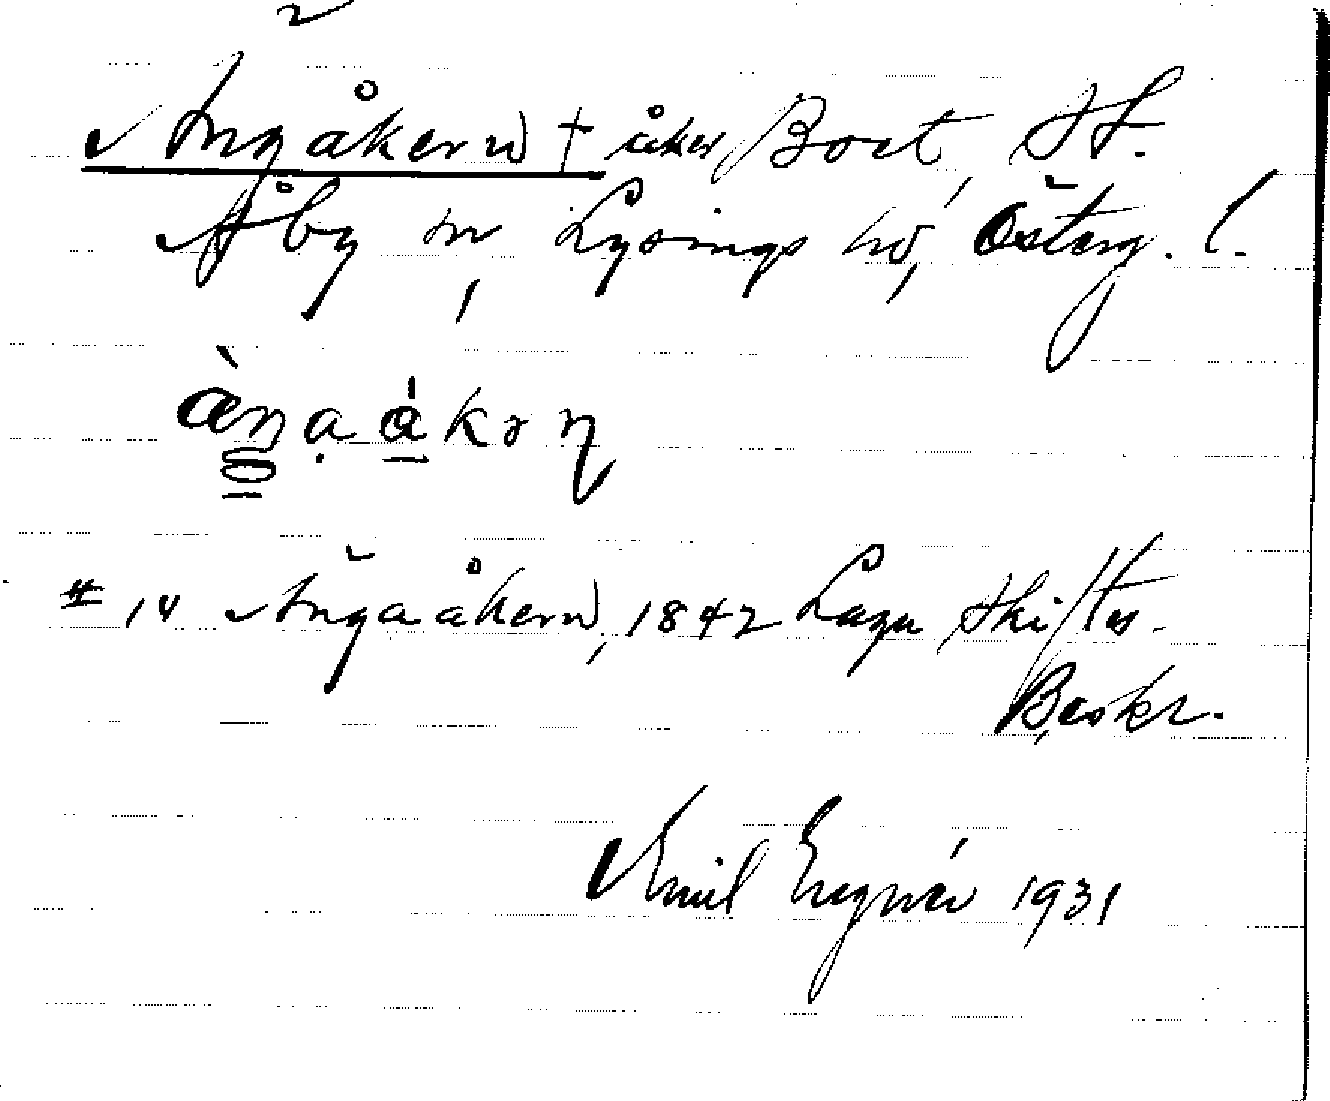 Ängåkern † åker Bost, St.
Åby sn, Lysings hd, Österg. l.
Ängaåkern, 1842 Laga Skiftes
Beskr.
Emil 1931